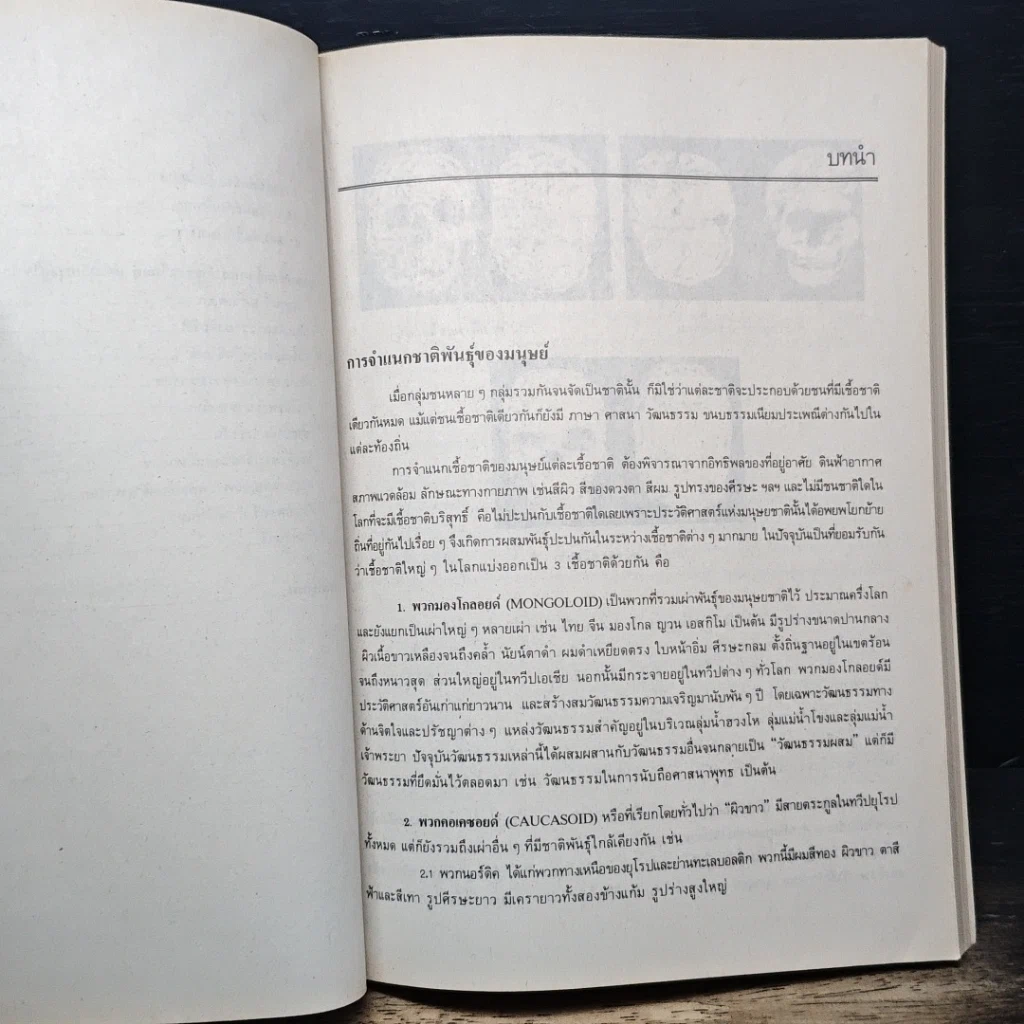 บทนำ
การจำแนกชาติพันธุ์ของมนุษย์
เมื่อกลุ่มชนหลาย ๆ กลุ่มรวมกันจนจัดเป็นชาตินั้น ก็มิใช่ว่าแต่ละชาติจะประกอบด้วยชนที่มีเชื้อชาติ
เดียวกันหมด แม้แต่ชนเชื้อชาติเดียวกันก็ยังมี ภาษา ศาสนา วัฒนธรรม ขนบธรรมเนียมประเพณีต่างกันไปใน
แต่ละท้องถิ่น
การจำแนกเชื้อชาติของมนุษย์แต่ละเชื้อชาติ ต้องพิจารณาจากอิทธิพลของที่อยู่อาศัย ดินฟ้าอากาศ
สภาพแวดล้อม ลักษณะทางกายภาพ เช่นสีผิว สีของดวงตา สีผม รูปทรงของศีรษะ ฯลฯ และไม่มีชนชาติใดใน
โลกที่จะมีเชื้อชาติบริสุทธิ์ คือไม่ปะปนกับเชื้อชาติใดเลยเพราะประวัติศาสตร์แห่งมนุษยชาตินั้นได้อพยพโยกย้าย
ถิ่นที่อยู่กันไปเรื่อย ๆ จึงเกิดการผสมพันธุ์ปะปนกันในระหว่างเชื้อชาติต่าง ๆ มากมาย ในปัจจุบันเป็นที่ยอมรับกัน
ว่าเชื้อชาติใหญ่ ๆ ในโลกแบ่งออกเป็น 3 เชื้อชาติด้วยกัน คือ
1. พวกมองโกลอยด์ (MONGOLOID) เป็นพวกที่รวมเผ่าพันธุ์ของมนุษยชาติไว้ ประมาณครึ่งโลก
และยังแยกเป็นเผ่าใหญ่ ๆ หลายเผ่า เช่น ไทย จีน มองโกล ญวน เอสกิโม เป็นต้น มีรูปร่างขนาดปานกลาง
ผิวเนื้อขาวเหลืองจนถึงคล้ำ นัยน์ตาดำ ผมดำเหยียดตรง ใบหน้าอิ่ม ศีรษะกลม ตั้งถิ่นฐานอยู่ในเขตร้อน
จนถึงหนาวสุด ส่วนใหญ่อยู่ในทวีปเอเชีย นอกนั้นมีกระจายอยู่ในทวีปต่าง ๆ ทั่วโลก พวกมองโกลอยด์มี
ประวัติศาสตร์อันเก่าแก่ยาวนาน และสร้างสมวัฒนธรรมความเจริญมานับพัน ๆ ปี โดยเฉพาะวัฒนธรรมทาง
ด้านจิตใจและปรัชญาต่าง ๆ แหล่งวัฒนธรรมสำคัญอยู่ในบริเวณลุ่มน้ำฮวงโห ลุ่มแม่น้ำโขงและลุ่มแม่น้ำ
เจ้าพระยา ปัจจุบันวัฒนธรรมเหล่านี้ได้ผสมผสานกับวัฒนธรรมอื่นจนกลายเป็น "วัฒนธรรมผสม" แต่ก็มี
วัฒนธรรมที่ยึดมั่นไว้ตลอดมา เช่น วัฒนธรรมในการนับถือศาสนาพุทธ เป็นต้น
2. พวกคอเคซอยด์ (CAUCASOID) หรือที่เรียกโดยทั่วไปว่า "ผิวขาว" มีสายตระกูลในทวีปยุโรป
ทั้งหมด แต่ก็ยังรวมถึงเผ่าอื่น ๆ ที่มีชาติพันธุ์ใกล้เคียงกัน เช่น
2.1 พวกนอร์ดิค ได้แก่พวกทางเหนือของยุโรปและย่านทะเลบอลติก พวกนี้มีผมสีทอง ผิวขาว ตาสี
ฟ้าและสีเทา รูปศีรษะยาว มีเครายาวทั้งสองข้างแก้ม รูปร่างสูงใหญ่